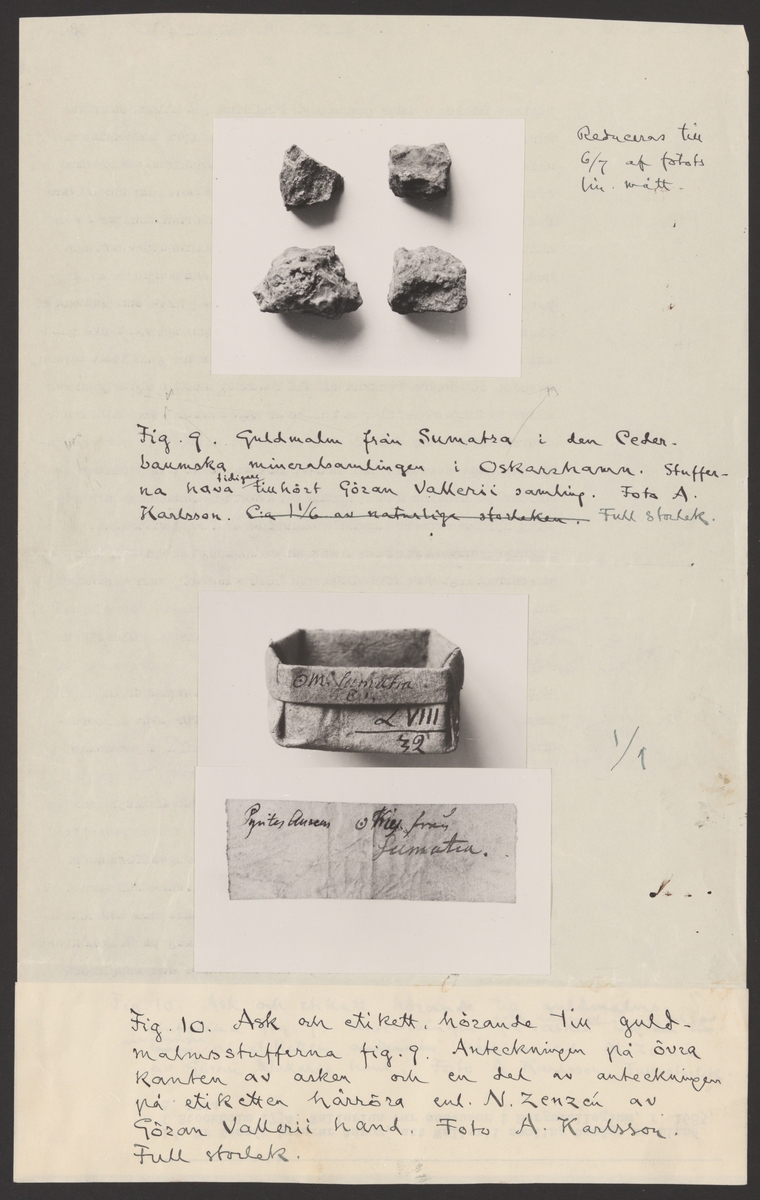 Reduceras till
6/7 af fotots
lin. mått.
Fig. 9. Guldmalm från Sumatra i den Ceder-
baumska mineralsamlingen i Oskarshamn. Stuffer-
na hava tidigare tillhört Göran Vallerii samling. Foto A.
Karlsson. C:a 1 1/6 av naturliga storleken. Full storlek.
☉ M. Sumatra
L VIII
32
1/1
Pyrites Aureus ☉ Kies från
Sumatra.
Fig. 10. Ask och etikett, hörande till guld-
malmsstufferna fig. 9. Anteckningen på övra
kanten av asken och en del av anteckningen
på etiketten härröra enl. N. Zenzén av
Göran Vallerii hand. Foto A. Karlsson.
Full storlek.